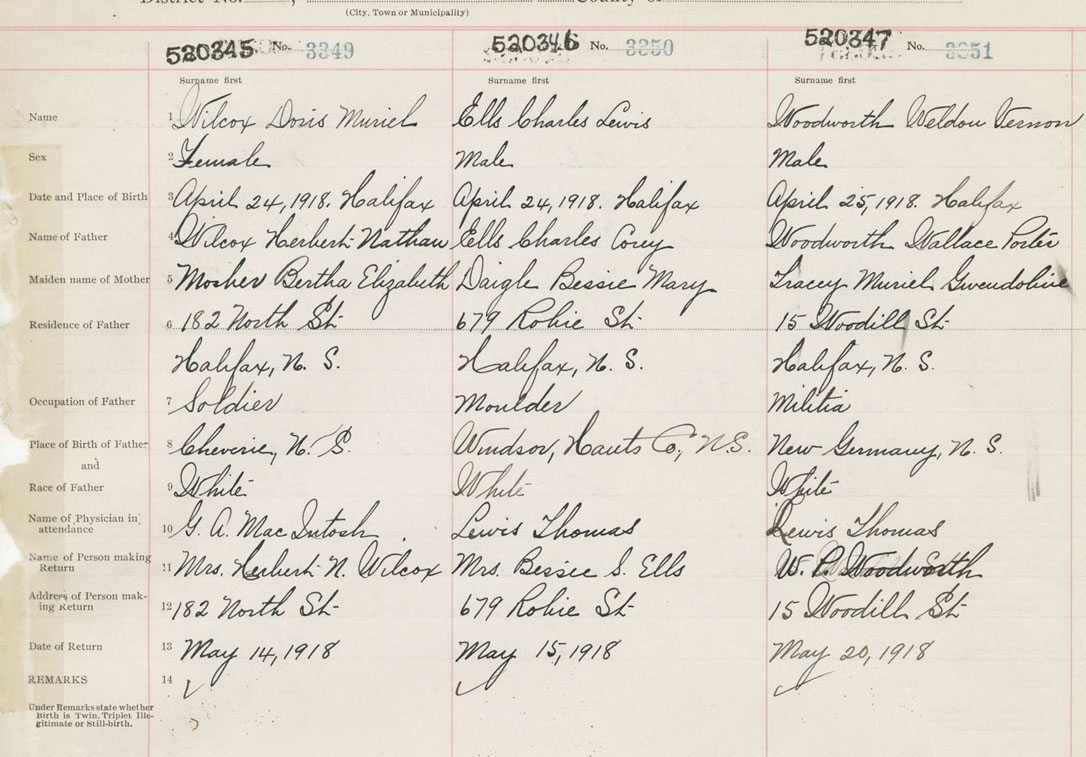 District No. , County of
(City, Town or Municipality)
520345 No. 3349 520346 No. 3350 520347 No. 3351
Surname first Surname first Surname first
Name 1 Wilcox Doris Muriel Ells Charles Lewis Woodworth Weldon Vernon
Sex 2 Female Male Male
Date and Place of Birth 3 April 24, 1918. Halifax April 24, 1918. Halifax April 25, 1918. Halifax
Name of Father 4 Wilcox Herbert Nathan Ells Charles Corey Woodworth Wallace Porter
Maiden name of Mother 5 Mosher Bertha Elizabeth Daigle Bessie Mary Tracey Muriel Gwendoline
Residence of Father 6 182 North St. 679 Robie St. 15 Woodill St.
Halifax, N. S. Halifax, N. S. Halifax, N. S.
Occupation of Father 7 Soldier Moulder Militia
Place of Birth of Father 8 Cheverie, N. S. Windsor, Hants Co, N.S. New Germany, N. S.
and
Race of Father 9 White White White
Name of Physician in attendance 10 G. A. MacIntosh Lewis Thomas Lewis Thomas
Name of Person making Return 11 Mrs. Herbert N. Wilcox Mrs. Bessie S. Ells W. P. Woodworth
Address of Person making Return 12 182 North St. 679 Robie St. 15 Woodill St.
Date of Return 13 May 14, 1918 May 15, 1918 May 20, 1918
REMARKS 14
Under Remarks state whether
Birth is Twin, Triplet Ille-
gitimate or Still-birth.